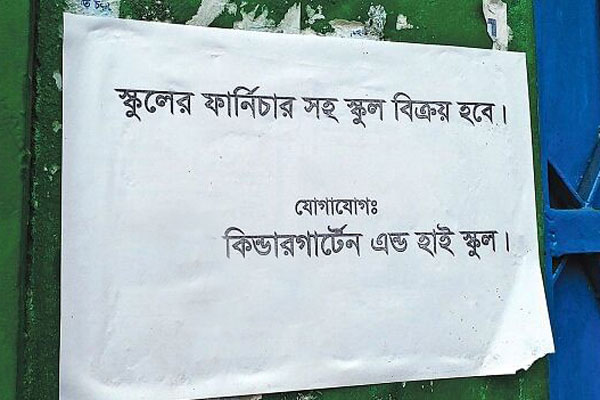 স্কুলের ফার্নিচার সহ স্কুল বিক্রয় হবে।
যোগাযোগঃ
কিন্ডারগার্টেন এন্ড হাই স্কুল।